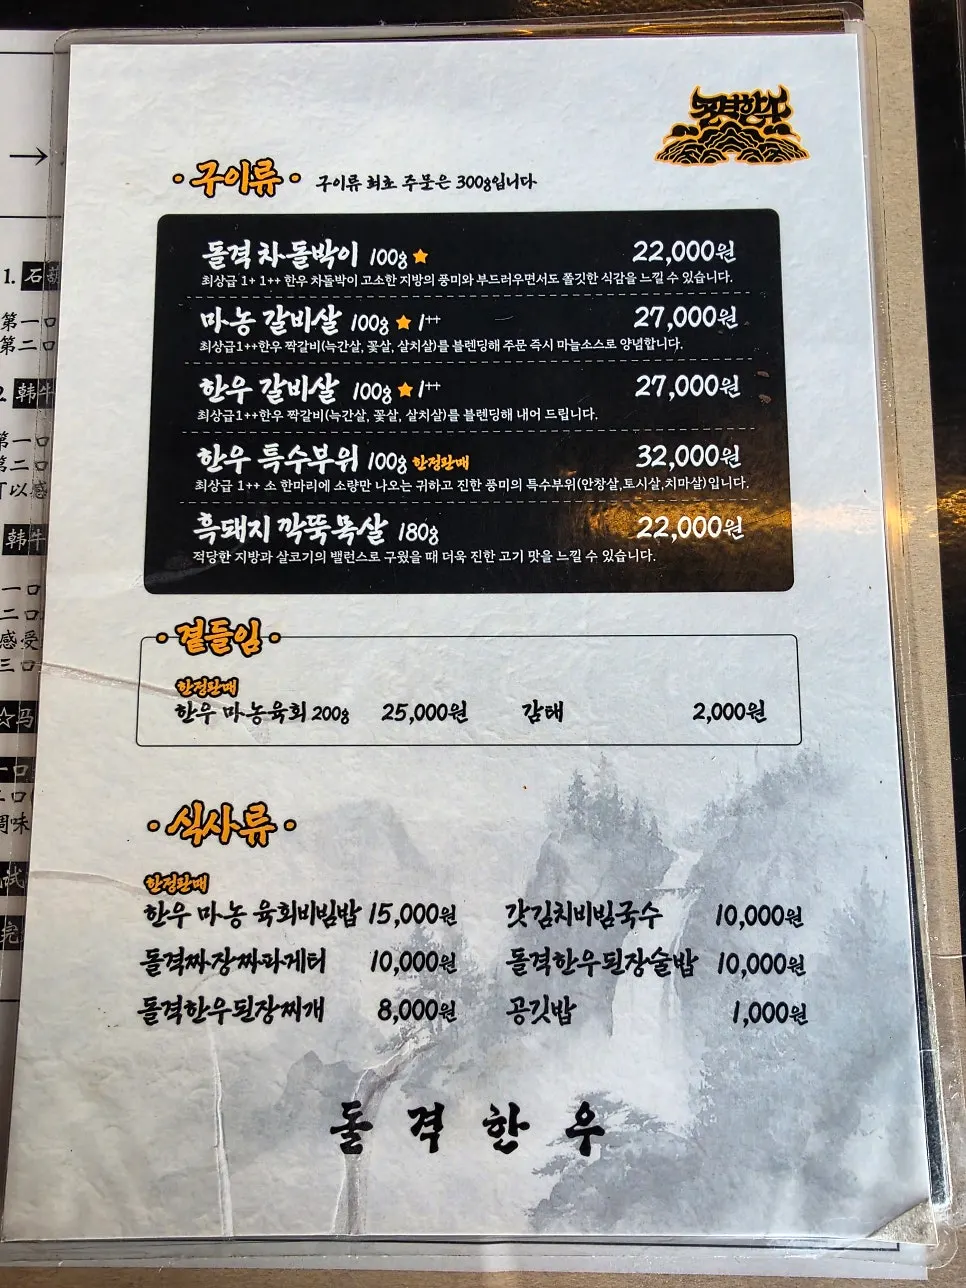 돌격한우
구이류 구이류 최초 주문은 300g입니다
돌격 차돌박이 100g ★ 22,000원
최상급 1+ 1++ 한우 차돌박이 고소한 지방의 풍미와 부드러우면서도 쫄깃한 식감을 느낄 수 있습니다.
마농 갈비살 100g ★ 1++ 27,000원
최상급1++한우 짝갈비(늑간살, 꽃살, 살치살)를 블렌딩해 주문 즉시 마늘소스로 양념합니다.
한우 갈비살 100g ★ 1++ 27,000원
최상급1++한우 짝갈비(늑간살, 꽃살, 살치살)를 블렌딩해 내어 드립니다.
한우 특수부위 100g 한정판매 32,000원
최상급 1++ 소 한마리에 소량만 나오는 귀하고 진한 풍미의 특수부위(안창살,토시살,치마살)입니다.
흑돼지 깍뚝목살 180g 22,000원
적당한 지방과 살코기의 밸런스로 구웠을 때 더욱 진한 고기 맛을 느낄 수 있습니다.
곁들임
한정판매
한우 마농육회 200g 25,000원 감태 2,000원
식사류
한정판매
한우 마농 육회비빔밥 15,000원 갓김치비빔국수 10,000원
돌격짜장짜파게티 10,000원 돌격한우된장술밥 10,000원
돌격한우된장찌개 8,000원 공깃밥 1,000원
돌격한우
→
1. 石
第一口
第二口
2. 韩牛
第一口
第二口
可以感
韩牛
一口
二口
感受
三口
☆马
一口
二口
调味
试
完